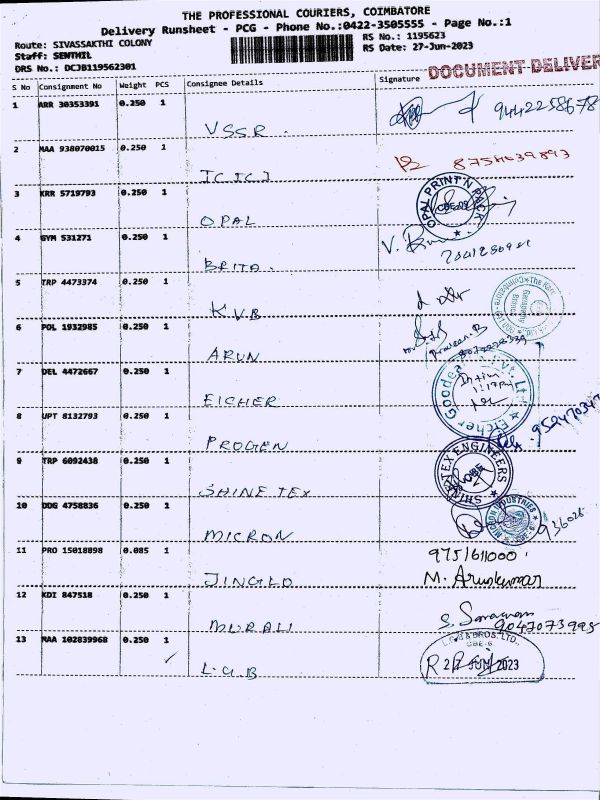 THE PROFESSIONAL COURIERS, COIMBATORE
Delivery Runsheet - PCG - Phone No.:0422-3505555 - Page No.:1
Route: SIVASSAKTHI COLONY
RS No.: 1195623
Staff: SENTHIL
RS Date: 27-Jun-2023
DRS No.: DCJB119562301
DOCUMENT DELIVER
S No Consignment No Weight PCS Consignee Details Signature
1 ARR 30353391 0.250 1 VSSR. 9442258678
2 MAA 938070015 0.250 1 ICICI
3 KRR 5719793 0.250 1 OPAL OPAL PRINT'N PACK
4 GYM 531271 0.250 1 BRITA. V.
5 TRP 4473374 0.250 1 KVB
6 POL 1932985 0.250 1 ARUN Praveen.B
7 DEL 4472667 0.250 1 EICHER Eicher Goodearth Pvt. Ltd
8 UPT 8132793 0.250 1 PROGEN
9 TRP 6092438 0.250 1 SHINE TEX SHINE TEX ENGINEERS
10 DDG 4758836 0.250 1 MICRON MICRON INDUSTRIES
11 PRO 15018898 0.085 1 JINGLO 9751611000
M. Arunkumar
12 KDI 847518 0.250 1 MURALI S. Saravanan
9047073995
13 MAA 102839968 0.250 1 L.G.B L.G.B & BROS. LTD.,
CBE-6
27 JUN 2023